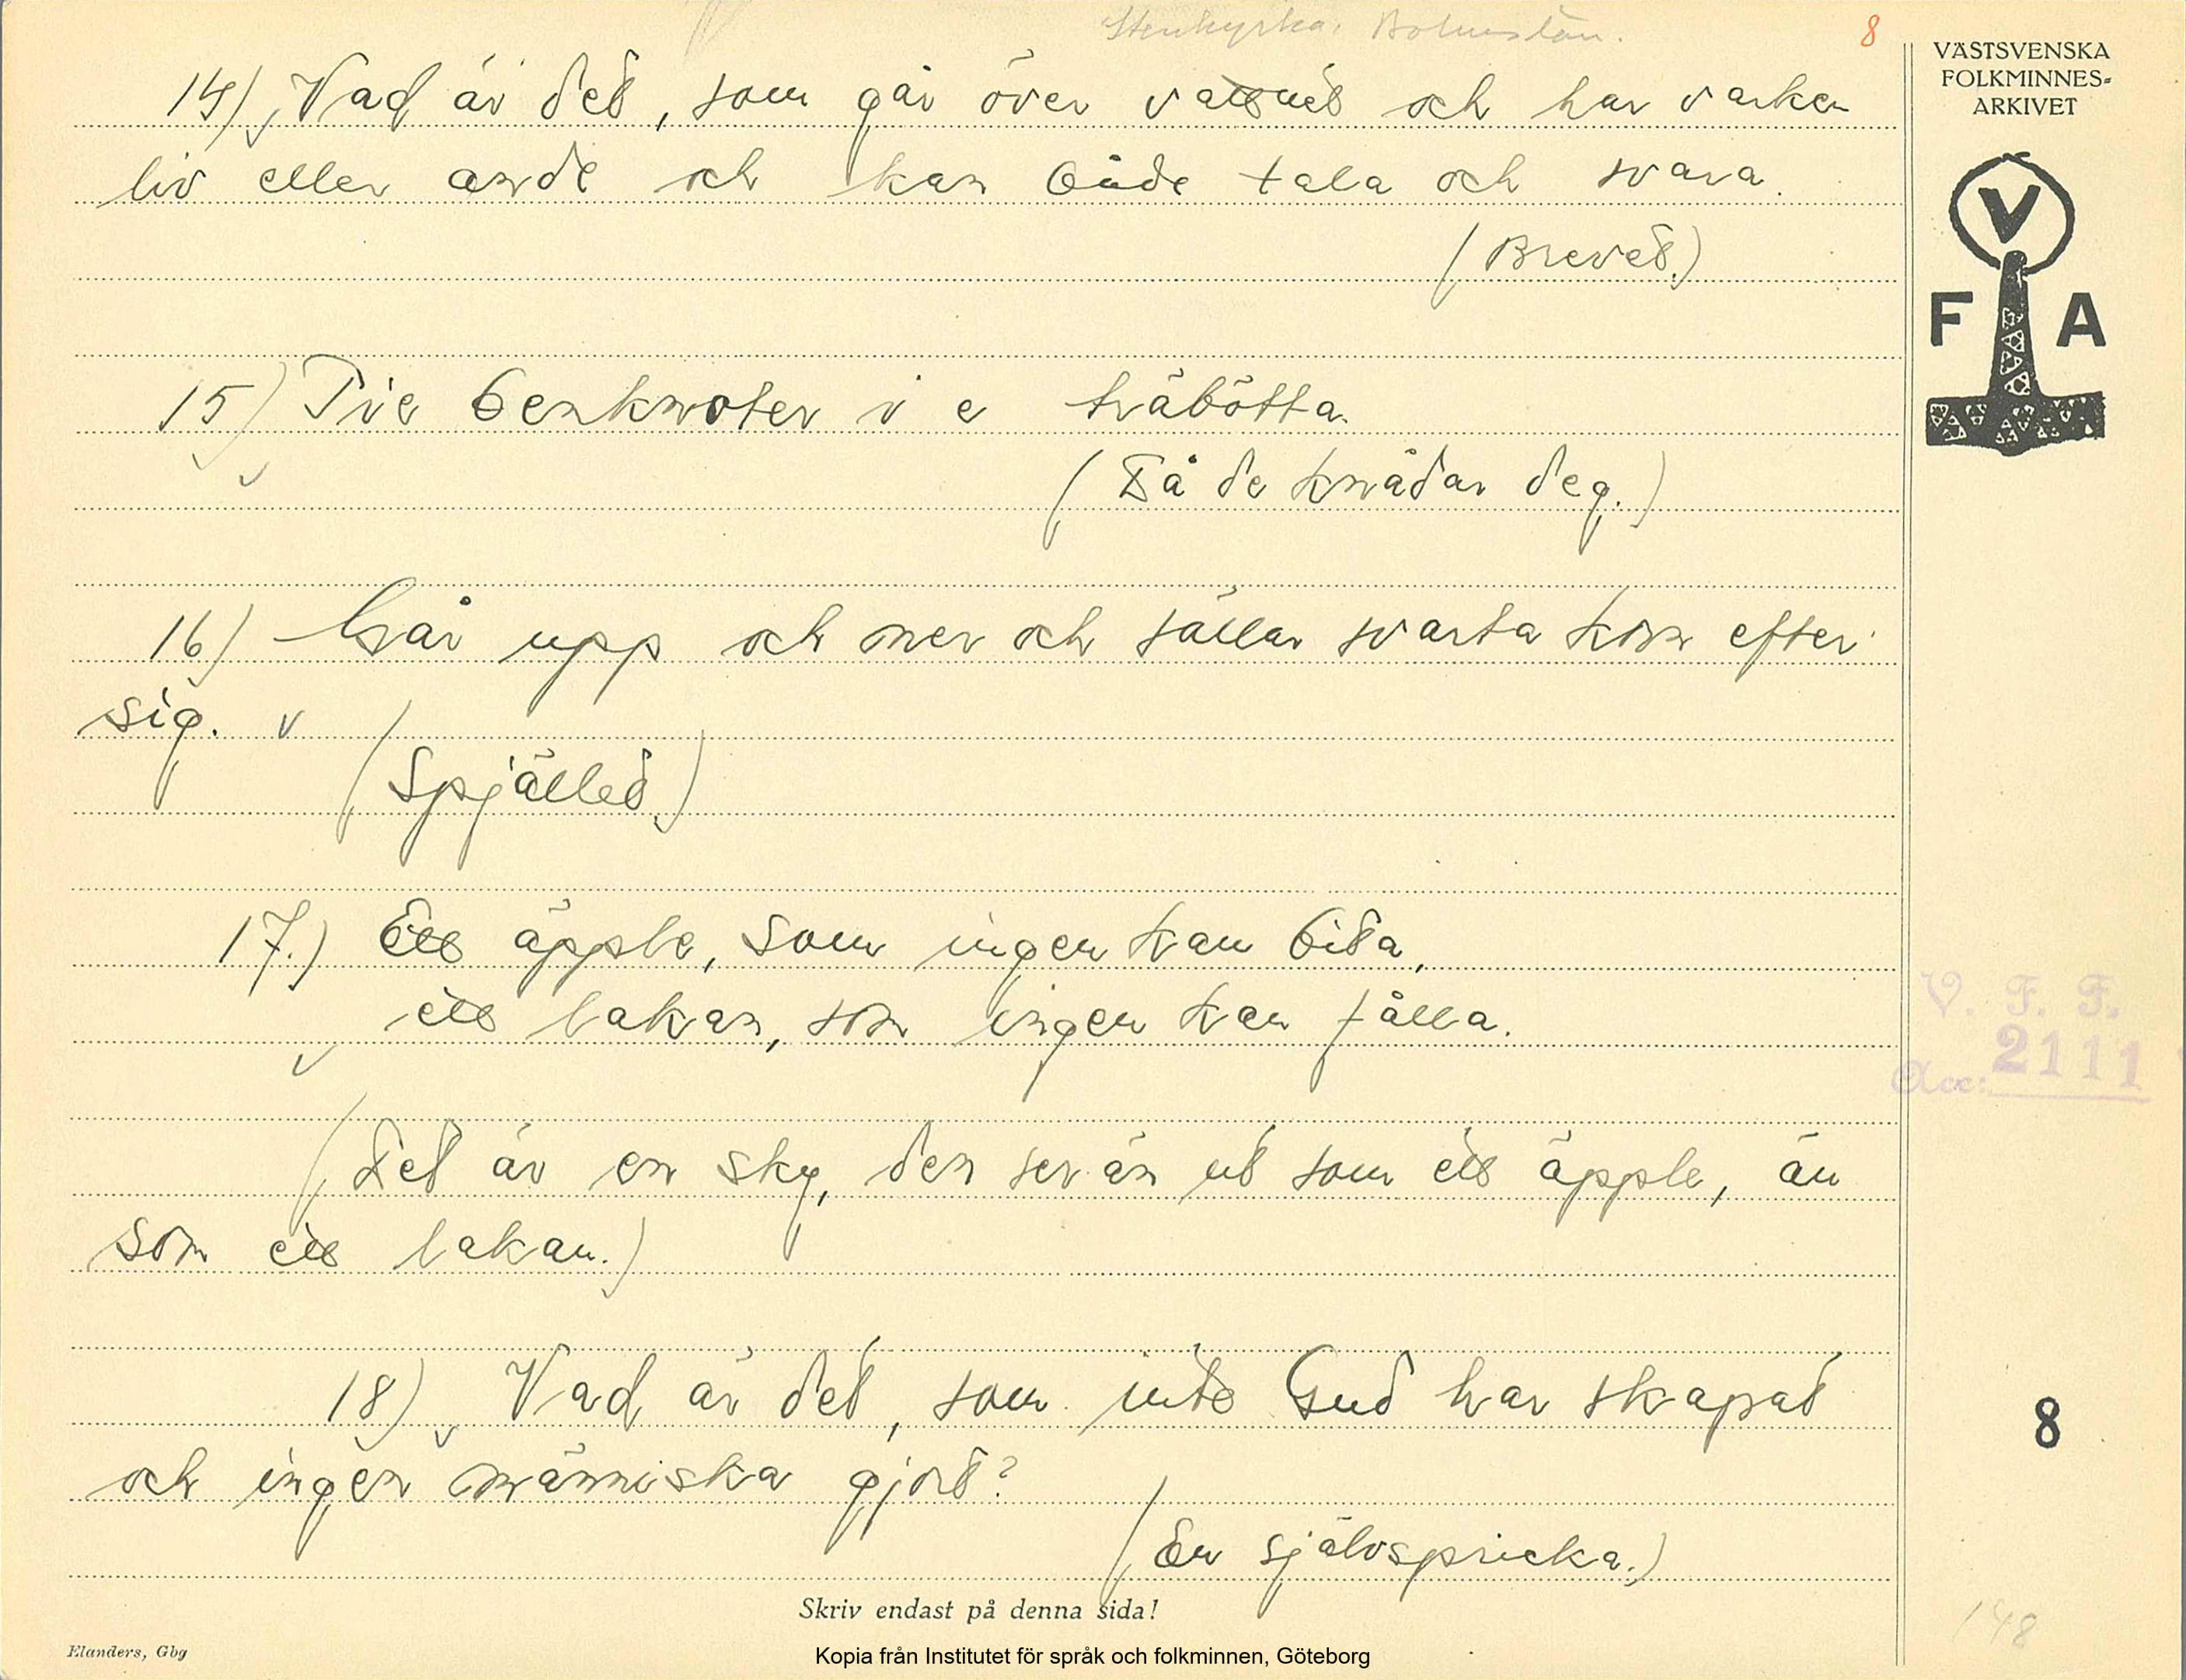 Stenkyrka. Bohuslän. 8
VÄSTSVENSKA
FOLKMINNES-
ARKIVET
14) Vad är det, som går över vattnet och har varken
liv eller ande och kan både tala och svara.
(Brevet.)
V
F A
15) Tie benknoter i e träbötta
(Då de knådar deg.)
16) Går upp och ner och fäller svarta korn efter
sig. v
(Spjället.)
17.) Ett äpple, som ingen kan bita,
ett lakan, som ingen kan fålla.
V. F. F.
Acc: 2111
(Det är en sky, den ser än ut som ett äpple, än
som ett lakan.)
18) Vad är det, som inte Gud har skapat
och ingen människa gjort?
8
(En självspricka.)
Skriv endast på denna sida!
148
Elanders, Gbg
Kopia från Institutet för språk och folkminnen, Göteborg